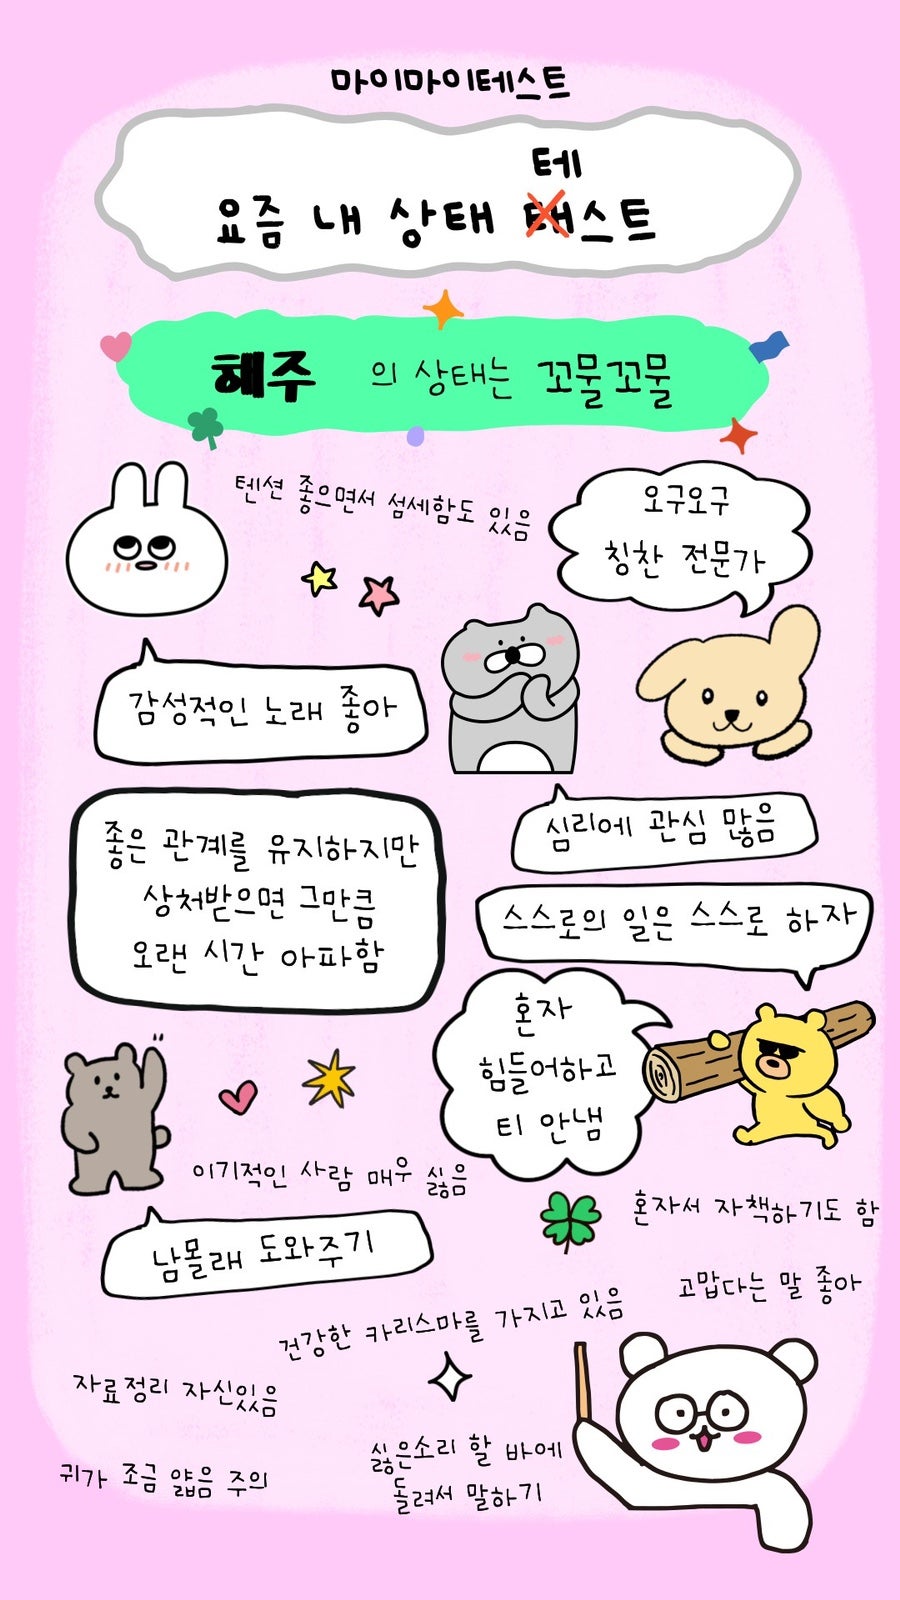 마이마이테스트
테
요즘 내 상태 태스트
혜주 의 상태는 꼬물꼬물
텐션 좋으면서 섬세함도 있음
오구오구
칭찬 전문가
감성적인 노래 좋아
심리에 관심 많음
좋은 관계를 유지하지만
상처받으면 그만큼
오랜 시간 아파함
스스로의 일은 스스로 하자
혼자
힘들어하고
티 안냄
이기적인 사람 매우 싫음
혼자서 자책하기도 함
남몰래 도와주기
고맙다는 말 좋아
건강한 카리스마를 가지고 있음
자료정리 자신있음
싫은소리 할 바에
돌려서 말하기
귀가 조금 얇음 주의